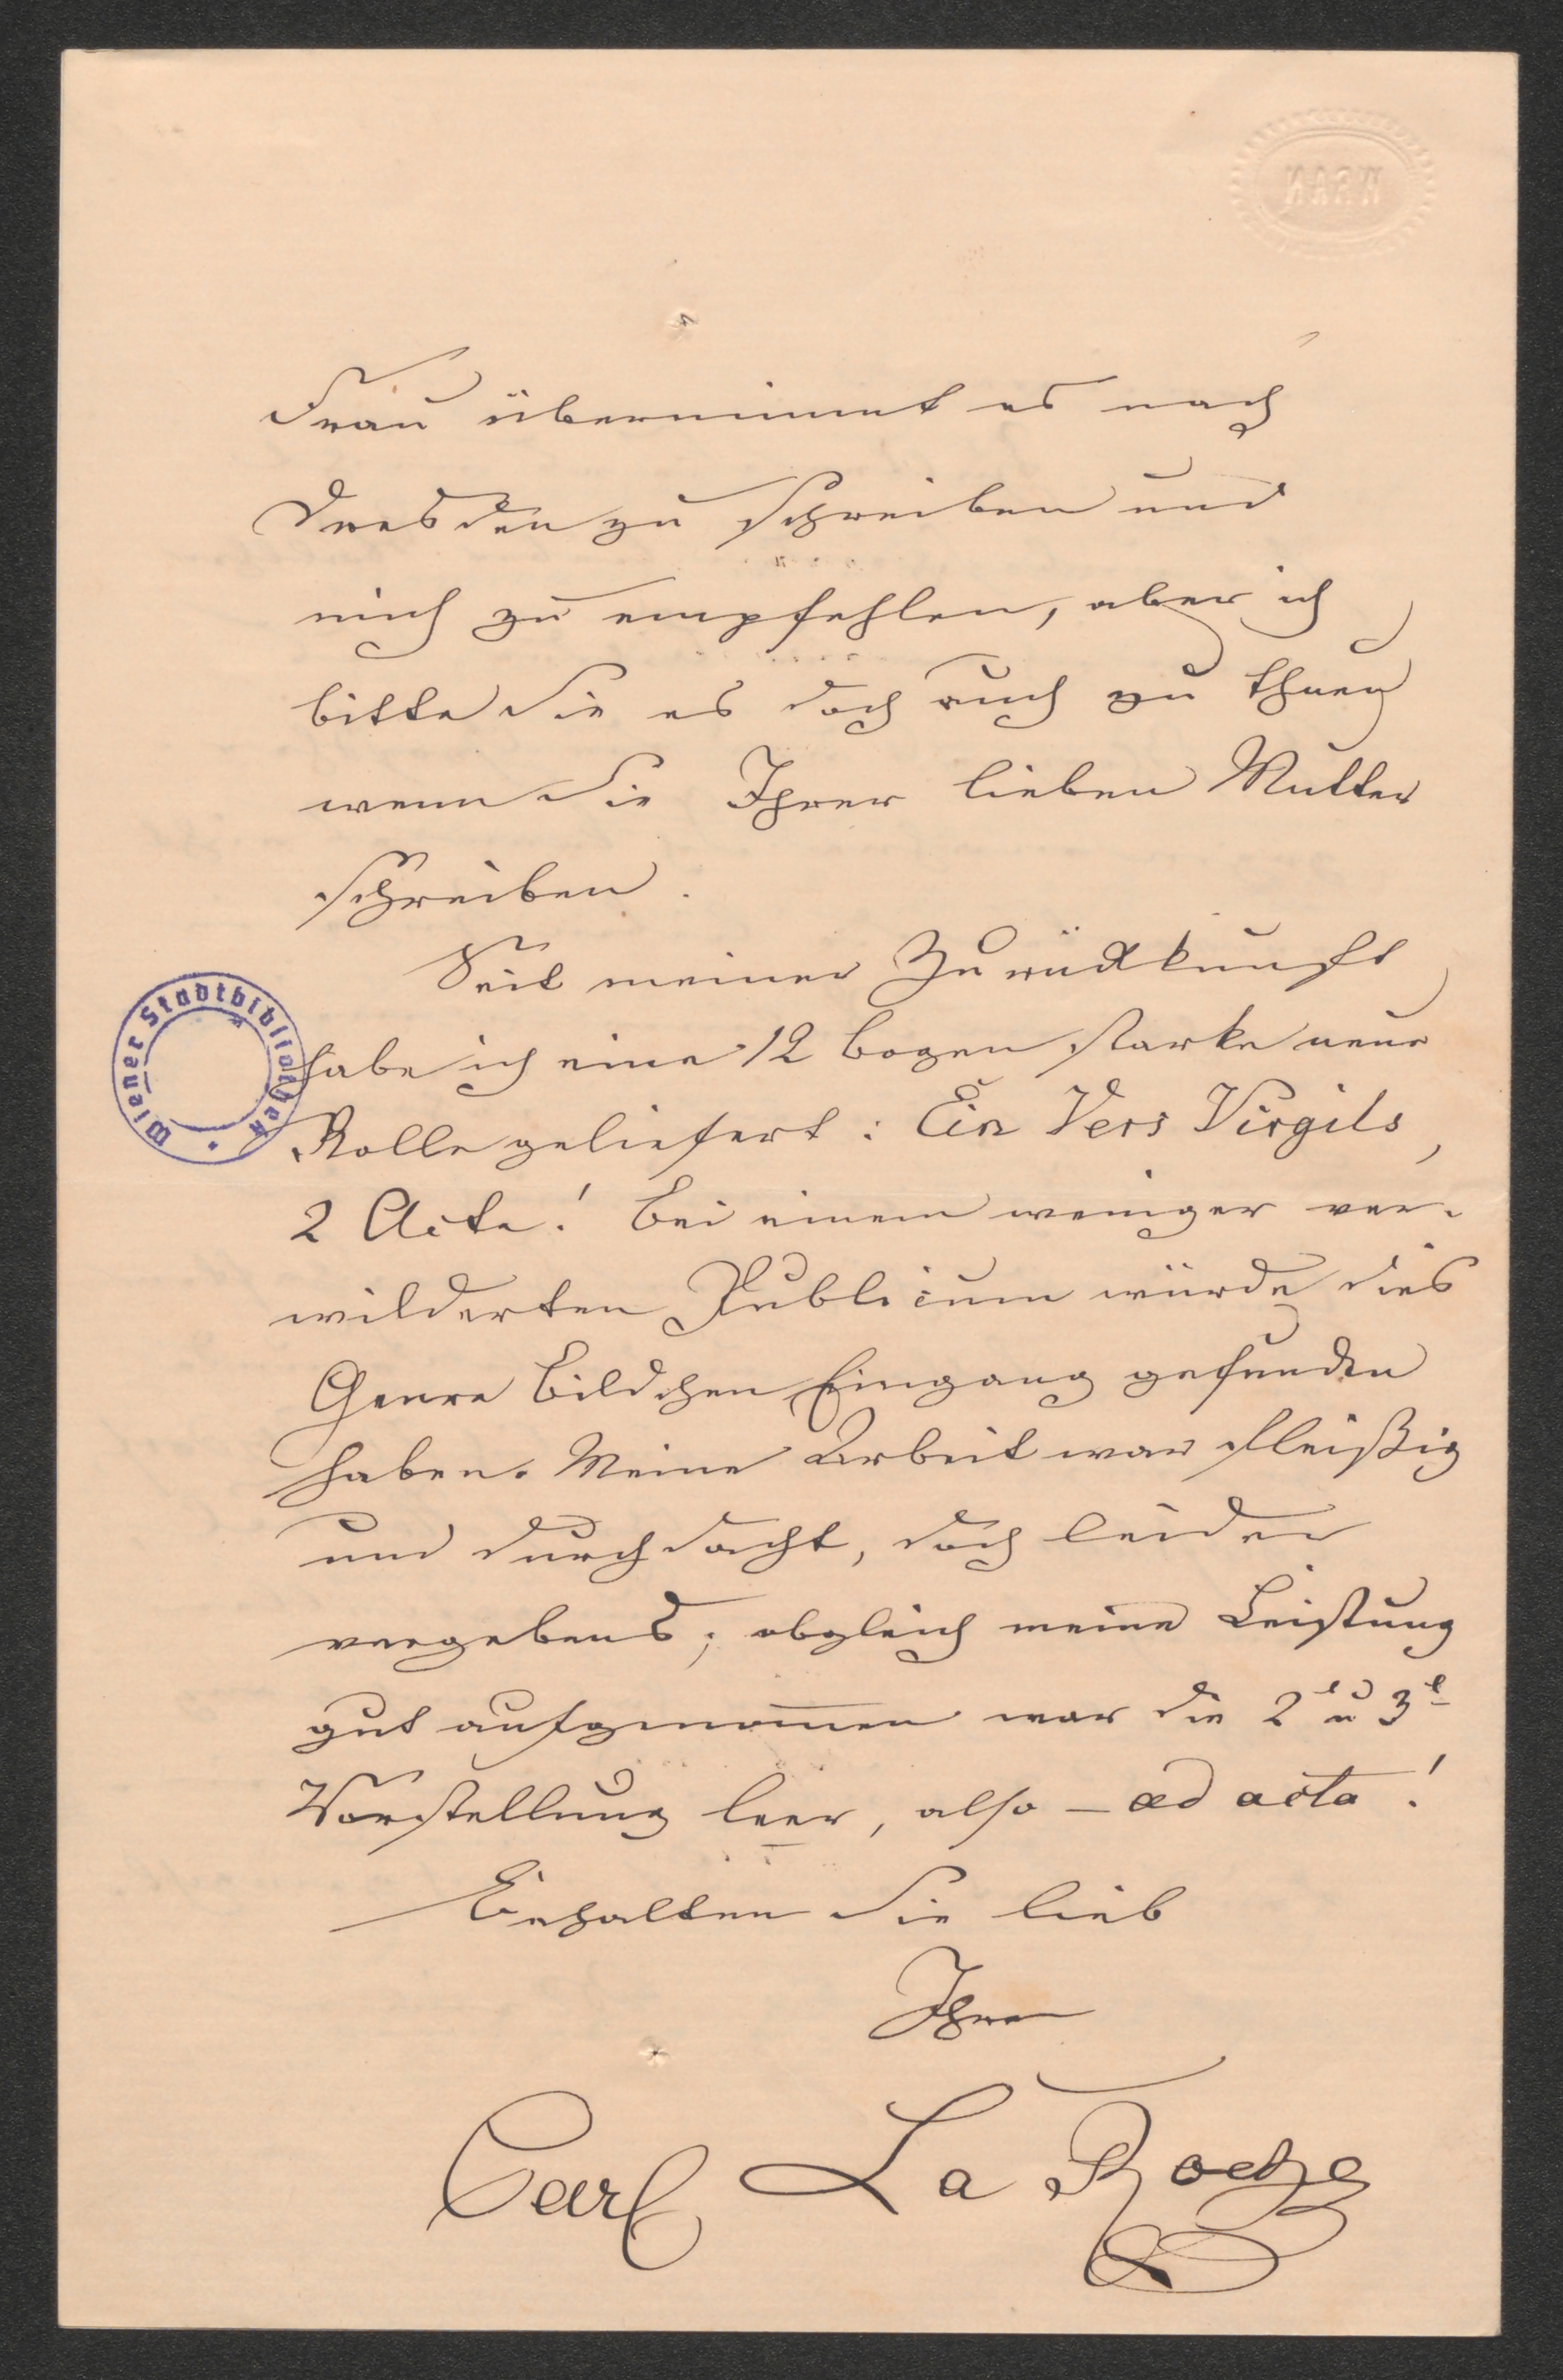 Frau übernimmt es nach
Dresden zu schreiben und
mich zu empfehlen, aber ich
bitte Sie es doch auch zu thuen
wenn Sie Ihrer lieben Mutter
schreiben.
Seit meiner Zurückkunft
habe ich eine 12 Bogen starke neue
Rolle geliefert: Ein Vers Virgils,
2 Acte! Bei einem weniger ver-
wilderten Publicum würde dies
Genre Bildchen Eingang gefunden
haben. Meine Arbeit war fleißig
und durchdacht, doch leider
vergebens; obgleich meine Leistung
gut aufgenom̅en war die 2t u 3t
Vorstellung leer, also – ad acta!
Behalten Sie lieb
Ihren
Carl La Roche
Wiener Stadtbibliothek